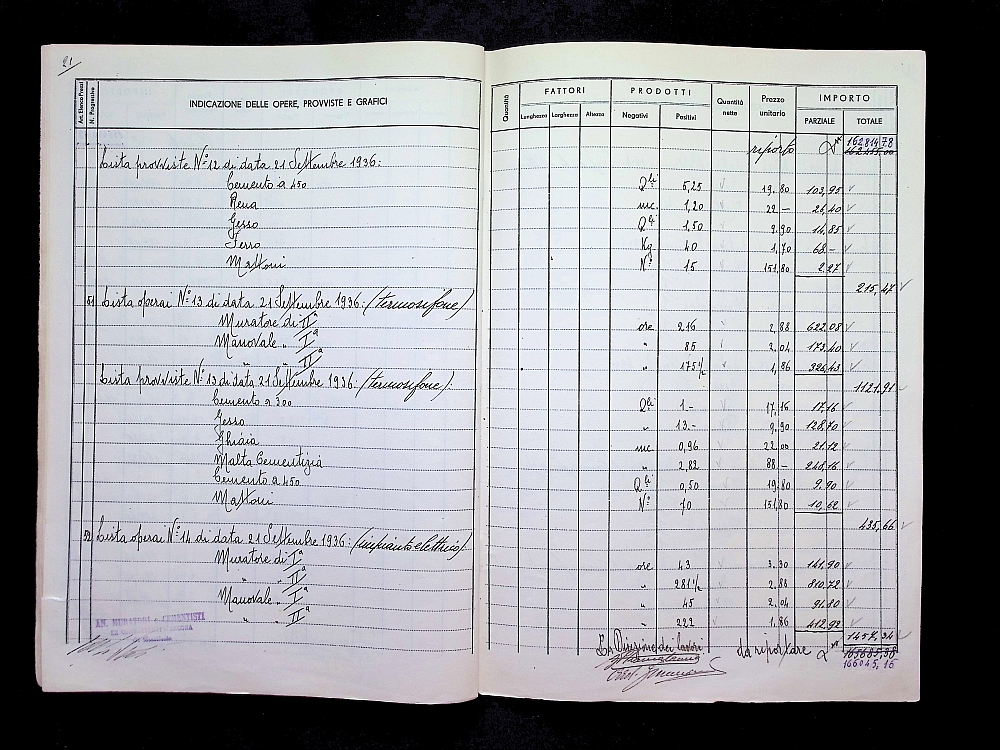 21
Art. Elenco Prezzi
N. Progressivo
INDICAZIONE DELLE OPERE, PROVVISTE E GRAFICI
Quantità
FATTORI
Lunghezza Larghezza Altezza
PRODOTTI
Negativi Positivi
Quantità nette
Prezzo unitario
IMPORTO
PARZIALE TOTALE
riporto 162814,78
162455,00
Lista provviste N.º 12 di data 21 Settembre 1936:
Cemento a 450 Q.li 5,25 19.80 103,95
Rena mc. 1,20 22 — 26,40
Gesso Q.li 1,50 9.90 14,85
Ferro Kg. 40 1,70 68.—
Mattoni N.º 15 151,80 2,27
215,47
51 Lista operai N.º 13 di data 21 Settembre 1936: (termosifone)
Muratore di IIª ore 216 2,88 622.08
Manovale „ Iª „ 85 2.04 173.40
„ „ IIª „ 175 1/2 1,86 326,43
1121.91
Lista provviste N.º 13 di data 21 Settembre 1936: (termosifone):
Cemento a 200 Q.li 1.— 17,16 17,16
Gesso „ 13.— 9,90 128,70
Ghiaia mc 0,96 22.00 21.12
Malta Cementizia „ 2,82 88 — 248,16
Cemento a 450 Q.li 0,50 19.80 9.90
Mattoni N.º 70 151,80 10,62
435,66
52 Lista operai N.º 14 di data 21 Settembre 1936: (impianto elettrico):
Muratore di Iª ore 43 3.30 141,90
„ „ IIª „ 281 1/2 2,88 810.72
Manovale „ Iª „ 45 2.04 91.80
„ „ IIª „ 222 1.86 412,92
1457,34
La Direzione dei lavori
da riportare 165685,38
166045,16
AN. MURATORI e CEMENTISTI